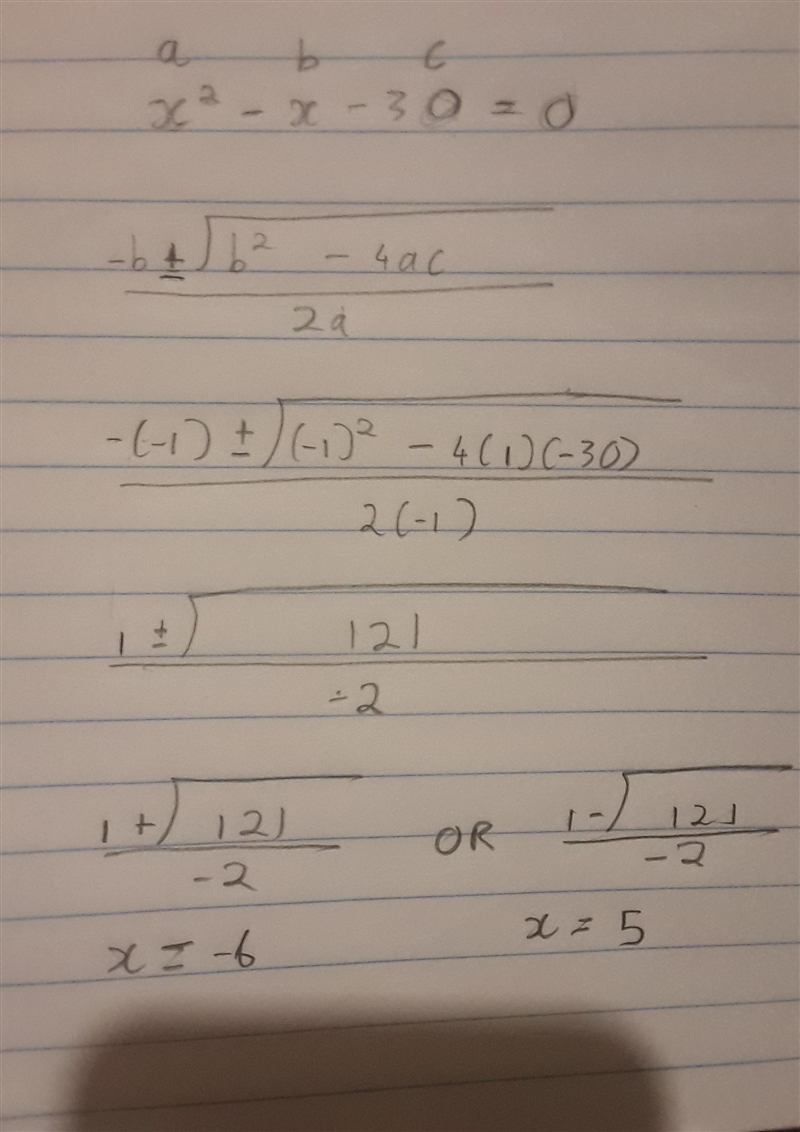 a b c
x² - x - 30 = 0
-b ± √b² - 4ac
2a
-(-1) ± √(-1)² - 4(1)(-30)
2(-1)
1 ± √121
-2
1 + √121 OR 1 - √121
-2 -2
x = -6 x = 5